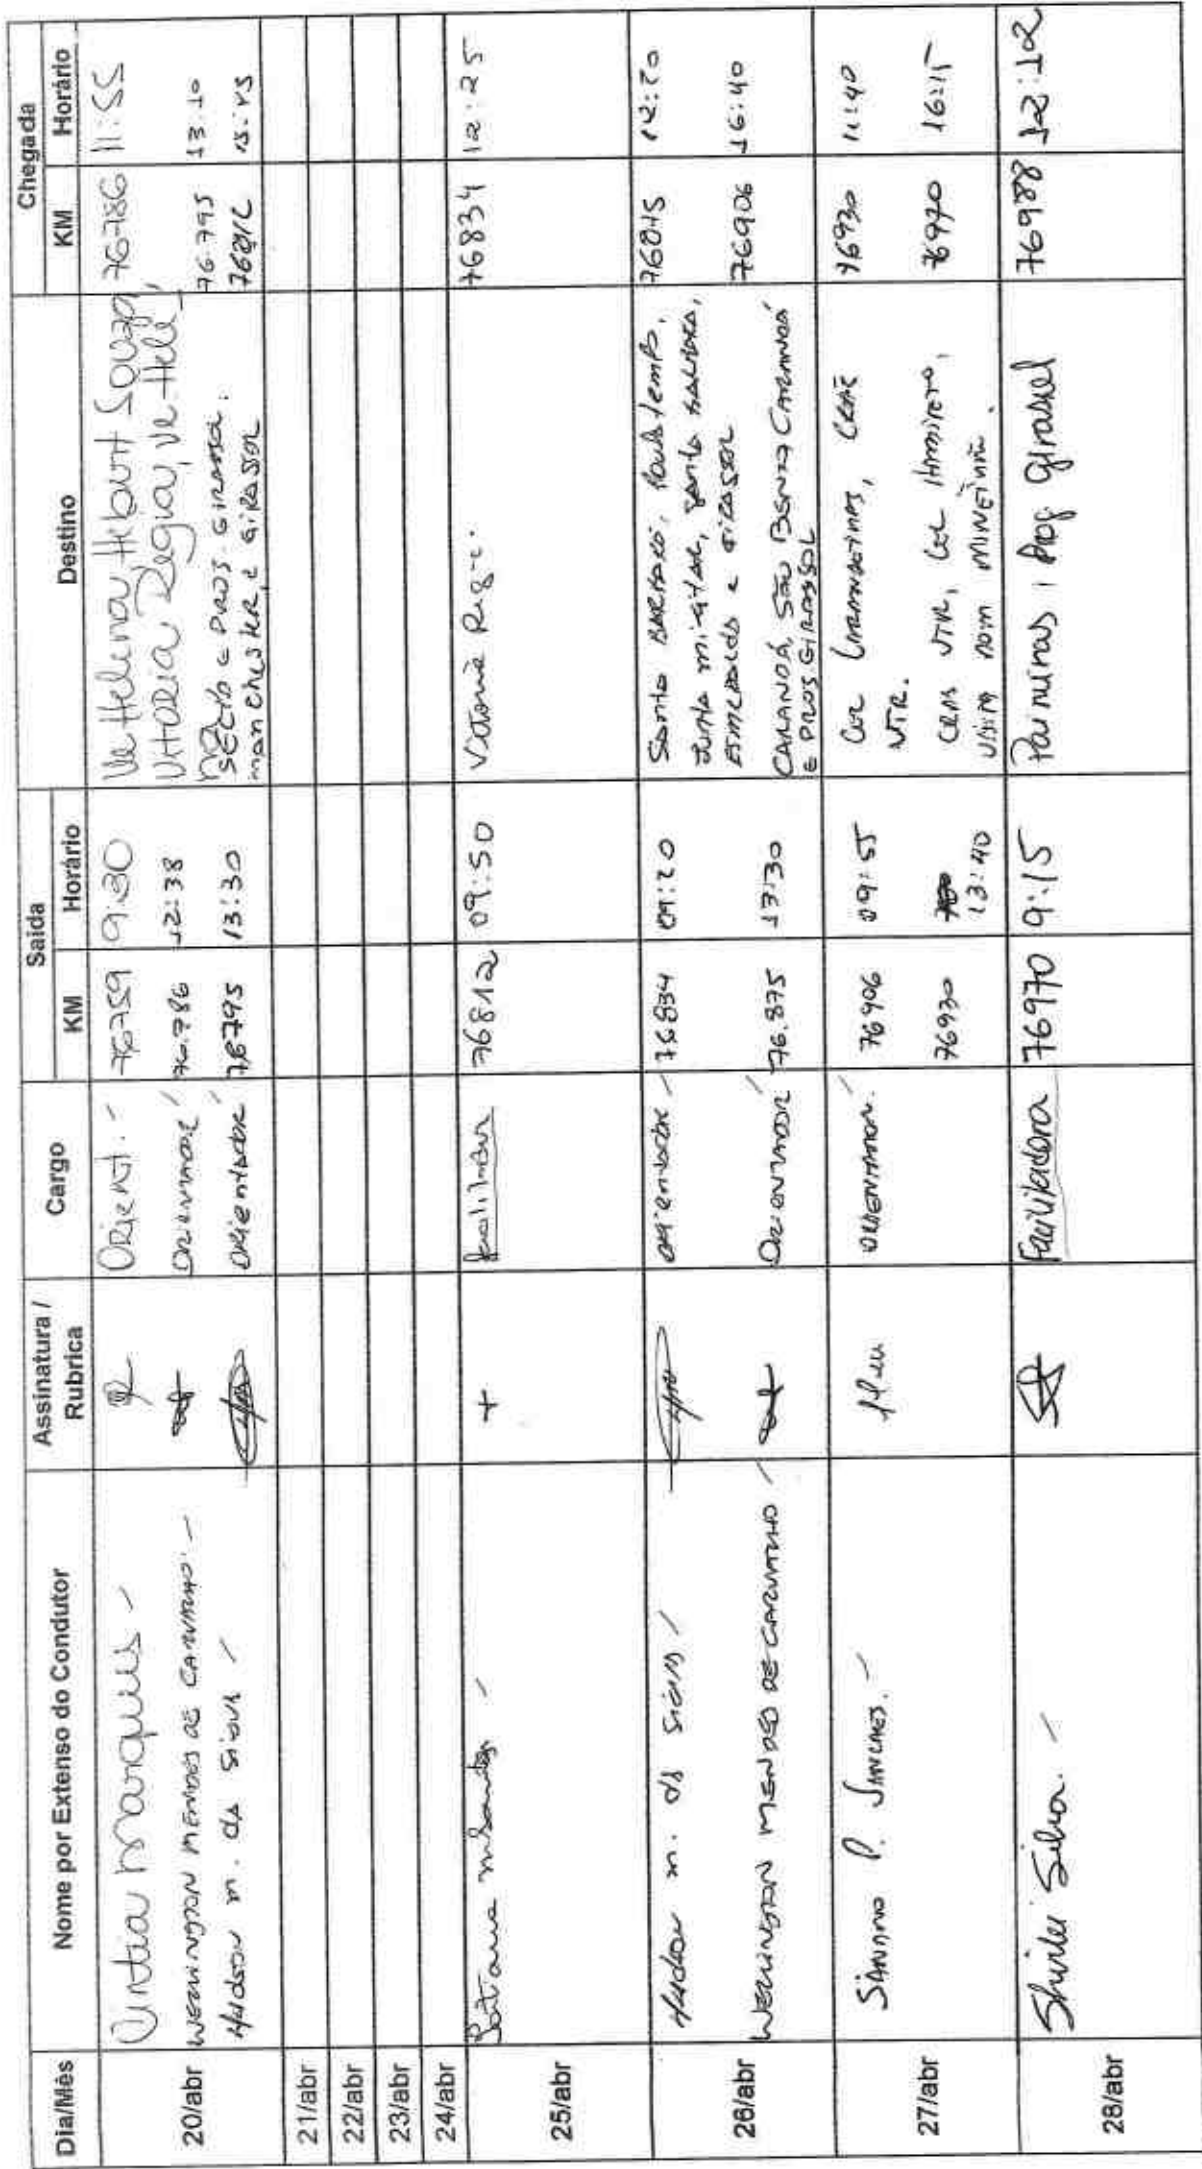 Dia/Mês Nome por Extenso do Condutor Assinatura / Rubrica Cargo Saida Destino Chegada
KM Horário KM Horário
20/abr Cintia Marques - Orient. - 76759 9:30 Ve Helena, Hebert Souza, 76786 11:55
Vitoria Regia, Ve. Hele
na
WELLINGTON MENDES DE CARVALHO - ORIENTADOR 76.786 12:38 SECTO E PROJ. GIRASSOL. 76.795 13:10
Hudson m. da Silva - orientador 76795 13:30 manchester, e GIRASSOL 15:45
21/abr
22/abr
23/abr
24/abr
25/abr facilitador 76812 09:50 Vitoria Regia. 76834 12:25
26/abr Hudson m. da Silva - orientador - 76834 09:20 Santa BARBARA, 12:20
Junta militar, Santa BARBARA,
ESMERALDA e GIRASSOL
WELLINGTON MENDES DE CARVALHO - ORIENTADOR 76.875 13:30 CARANDÁ, SÃO BENTO, CARANDÁ 76906 16:40
E PROJ. GIRASSOL
27/abr SANDRO P. SANCHES. - ORIENTADOR. 76906 09:55 76930 11:40
VTR.
76930 13:40 76970 16:15
28/abr Shirlei Silva. - Facilitadora 76970 9:15 Paineiras, Prog. Girassol 76988 12:12